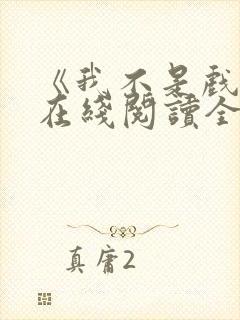 《我不是戲
在綫閱讀全
真庸2